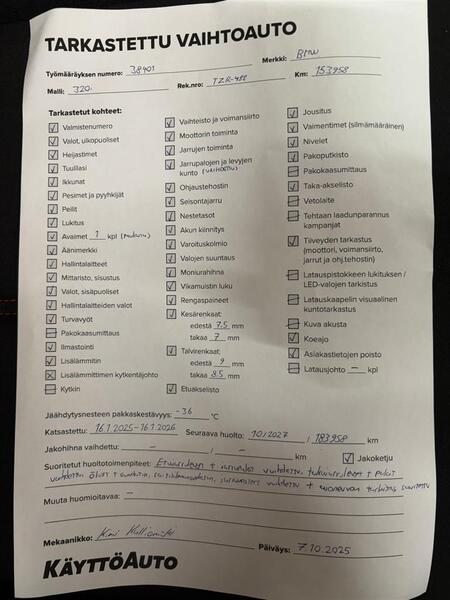 TARKASTETTU VAIHTOAUTO
Työmääräyksen numero: 38401 Merkki: BMW
Malli: 320i Rek.nro: TZR-488 Km: 153958
Tarkastetut kohteet:
Valmistenumero
Valot, ulkopuoliset
Heijastimet
Tuulilasi
Ikkunat
Pesimet ja pyyhkijät
Peilit
Lukitus
Avaimet 1 kpl
Äänimerkki
Hallintalaitteet
Mittaristo, sisustus
Valot, sisäpuoliset
Hallintalaitteiden valot
Turvavyöt
Pakokaasumittaus
Ilmastointi
Lisälämmitin
Lisälämmittimen kytkentäjohto
Kytkin
Vaihteisto ja voimansiirto
Moottorin toiminta
Jarrujen toiminta
Jarrupalojen ja levyjen
kunto (VAIHDETTU)
Ohjaustehostin
Seisontajarru
Nestetasot
Akun kiinnitys
Varoituskolmio
Valojen suuntaus
Moniurahihna
Vikamuistin luku
Rengaspaineet
Kesärenkaat:
edestä 7.5 mm
takaa 7 mm
Talvirenkaat:
edestä 9 mm
takaa 8.5 mm
Etuakselisto
Jousitus
Vaimentimet (silmämääräinen)
Nivelet
Pakoputkisto
Pakokaasumittaus
Taka-akselisto
Vetolaite
Tehtaan laadunparannus
kampanjat
Tiiveyden tarkastus
(moottori, voimansiirto,
jarrut ja ohj.tehostin)
Latauspistokkeen lukituksen /
LED-valojen tarkistus
Latauskaapelin visuaalinen
kuntotarkastus
Kuva akusta
Koeajo
Asiakastietojen poisto
Latausjohto - kpl
Jäähdytysnesteen pakkaskestävyys: -36 °C
Katsastettu: 16.1.2025-16.1.2026 Seuraava huolto: 10/2027 / 183958 km
Jakohihna vaihdettu: - / - km Jakoketju
Suoritetut huoltotoimenpiteet:
Muuta huomioitavaa: -
Mekaanikko: Kimi
Päiväys: 7.10.2025
KÄYTTÖAUTO